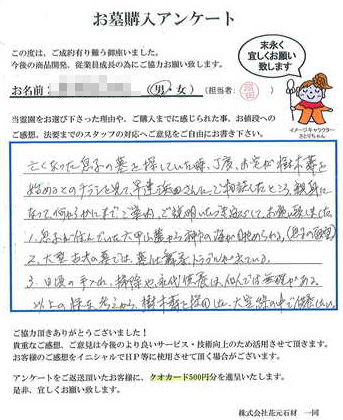 お墓購入アンケート
この度は、ご成約有り難う御座いました。
今後の商品開発、従業員成長の為にご協力お願い致します。
末永く
宜しくお願い
致します
お名前: (男・女) (担当者:
イメージキャラクター
さとりちゃん
当霊園をお選び下さった理由や、ご購入までに感じられた事、お値段への
ご感想、法要までのスタッフの対応へご意見をご自由にお書き下さい。
亡くなった息子の墓を探していた時、丁度、お宅が樹木葬を
始めるとのチラシを見て、早速浜田さんにご相談したところ、親身に
なって、何から何までご案内、ご説明いただき
1. 息子が住んでいた六甲山麓から神戸の海が眺められる、(息子の
2. 大型古式の墓では、
3. 日頃の手入れ、掃除や永代供養は、個人では無理がある。
以上の様な考えから、樹木葬を採用した。
ご協力頂きありがとうございました!
貴重なご感想、ご意見は今後のより良いサービス・技術向上のため活用させて頂きます。
お客様のご感想をイニシャルでHP等に使用させて頂く場合がございます。
アンケートをご返送頂いたお客様に、クオカード500円分を進呈いたします。
是非、宜しくお願い致します。
株式会社花元石材 一同